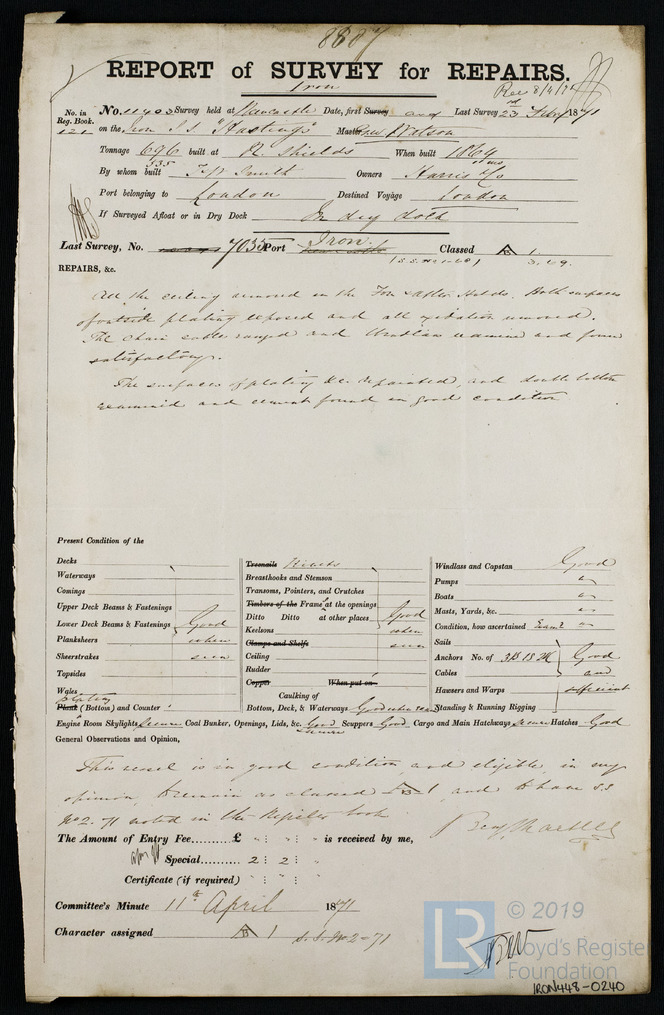 8807
REPORT of SURVEY for REPAIRS.
Iron
Rec 8/4/71
No. in Reg. Book. No. 11403 Survey held at Newcastle Date, first Survey and Last Survey 23rd Feby 1871
121 on the Iron S.S. "Hastings" Master Watson
Tonnage 696 built at N. Shields When built 1864
535
By whom built T. & W. Smith Owners Harris
Port belonging to London Destined Voyage London
If Surveyed Afloat or in Dry Dock In dry dock
Last Survey, No. 7035 Port Iron. Classed A 1
S.S. No 1-69 3.69.
REPAIRS, &c.
All the ceiling removed in the Fore & after Holds. Both surfaces
of outside plating exposed and all oxidation removed.
The chain cables ranged and Windlass examined and found
satisfactory.
The surfaces of plating &c. repainted, and double bottom
examined and cement found in good condition
Present Condition of the
Decks
Waterways
Comings
Upper Deck Beams & Fastenings
Lower Deck Beams & Fastenings Good
Planksheers where
Sheerstrakes seen
Topsides
Wales
plating
Plank (Bottom) and Counter
Treenails Rivets
Breasthooks and Stemson
Transoms, Pointers, and Crutches
Timbers of the Frame at the openings
Ditto Ditto at other places Good
Keelsons where
Clamps and Shelfs seen
Ceiling
Rudder
Copper When put on
Caulking of
Bottom, Deck, & Waterways Good where seen
Windlass and Capstan Good
Pumps do
Boats do
Masts, Yards, &c. do
Condition, how ascertained Examd do
Sails
Anchors No. of 3B 1S 2K Good
Cables and
Hawsers and Warps sufficient
Standing & Running Rigging
Engine Room Skylights Secure Coal Bunker, Openings, Lids, &c. Good Scuppers Good Cargo and Main Hatchways Secure Hatches Good
Secure
General Observations and Opinion,
This vessel is in good condition and eligible, in my
opinion, to remain as classed A 1, and to have S.S.
No 2. 71 noted in the Register book
The Amount of Entry Fee.......... £ " : " : " is received by me,
Special......... 2 : 2 : "
Certificate (if required) " : " : "
Committee's Minute 11th April 1871
Character assigned A 1 S.S. No 2-71
LR © 2019
Lloyd's Register
Foundation
IRON448-0240